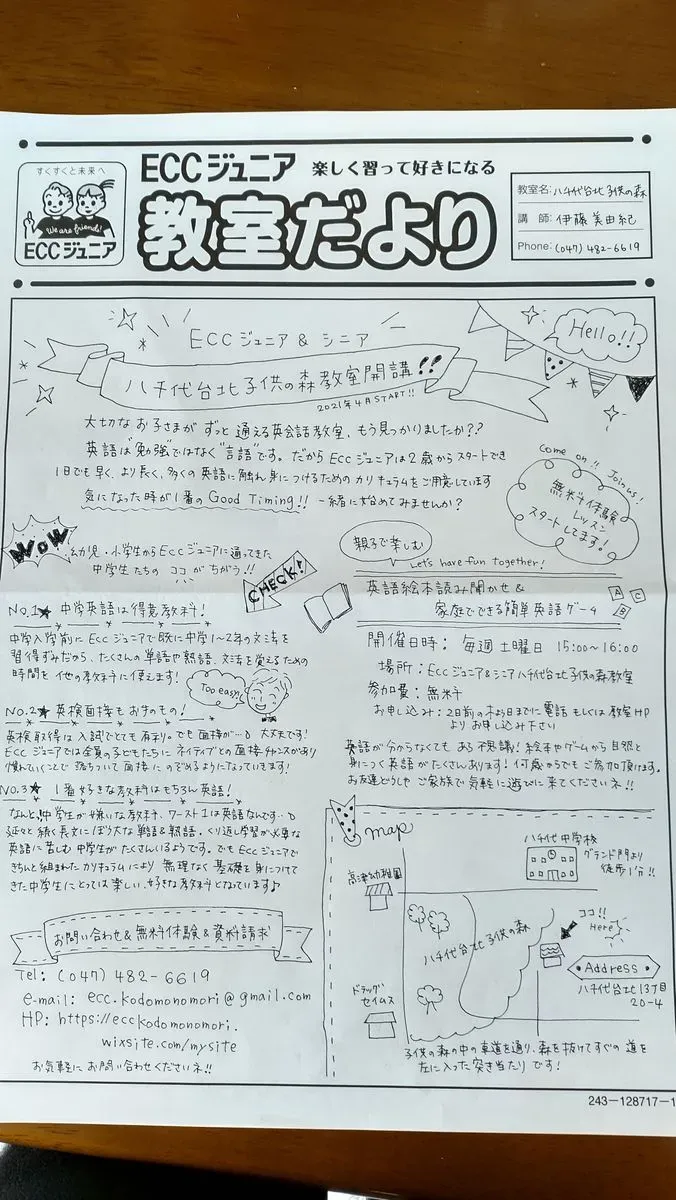 すくすくと未来へ
We are friend!
ECCジュニア
ECCジュニア 楽しく習って好きになる
教室だより
教室名: 八千代台北子供の森
講 師: 伊藤 美由紀
Phone: (047) 482-6619
ECC ジュニア & シニア
八千代台北子供の森教室開講!!
2021年4月START!!
Hello!!
大切なお子さまが ずっと 通える英会話教室、もう見つかりましたか??
英語は"勉強"ではなく"言語"です。だから ECC ジュニアは2歳からスタートでき
1日でも早く、より長く、多くの英語に触れ身につけるための カリキュラムをご用意しています
気になった時が1番の Good Timing!! 一緒に始めてみませんか?
Come on!! Join us!
無料体験
レッスン
スタートしてます!
WOW
幼児・小学生からECCジュニアに通ってきた
中学生たちの ココ がちがう!!
CHECK!
No.1★ 中学英語は得意教科!
中学入学前にECCジュニアで既に中学1〜2年の文法を
習得ずみだから、たくさんの単語や熟語、文法を覚えるための
時間を他の教科に使えます!
Too easy!
No.2★ 英検面接もおきのもの!
英検取得は入試でとても有利。でも面接が… 大丈夫です!
ECCジュニアでは全員の子どもたちに ネイティブとの面接チャンスがあり
慣れていくことで 落ちついて面接に のぞめるようになっていきます!
No.3★ 1番好きな教科はもちろん英語!
なんと!中学生が嫌いな教科、ワースト1は英語なんです
延々と続く長文にぼう大な単語&熟語。くり返し学習が必要な
英語に苦しむ 中学生が たくさんいるようです。でもECCジュニアで
きちんと組まれたカリキュラムにより 無理なく 基礎を身につけて
きた中学生にとっては楽しい、好きな教科となっています♪
お問い合わせ&無料体験&資料請求
Tel: (047) 482-6619
e-mail: ecc.kodomonomori@gmail.com
HP: https://ecckodomonomori.
wixsite.com/mysite
お気軽に お問い合わせくださいネ!!
親子で楽しむ
Let's have fun together!
英語絵本読み聞かせ &
家庭でできる簡単英語ゲーム
A C
B
開催日時: 毎週 土曜日 15:00〜16:00
場所: ECCジュニア&シニア八千代台北子供の森教室
参加費: 無料
お申し込み: 2日前の木よう日までに電話 もしくは教室HP
よりお申し込み下さい
英語が分からなくても ある不思議!絵本やゲームから自然と
身につく英語がたくさんあります!何歳からでもご参加頂けます。
お友達どうしや ご家族で気軽に遊びに来てくださいネ!!
map
八千代中学校
グランド門より
徒歩1分!!
高津幼稚園
八千代台北子供の森
ココ!!
Here
Address
八千代台北13丁目
20-4
ドラッグ
セイムス
子供の森の中の車道を通り、森を抜けてすぐの 道を
左に入った突き当たりです!
243-128717-1